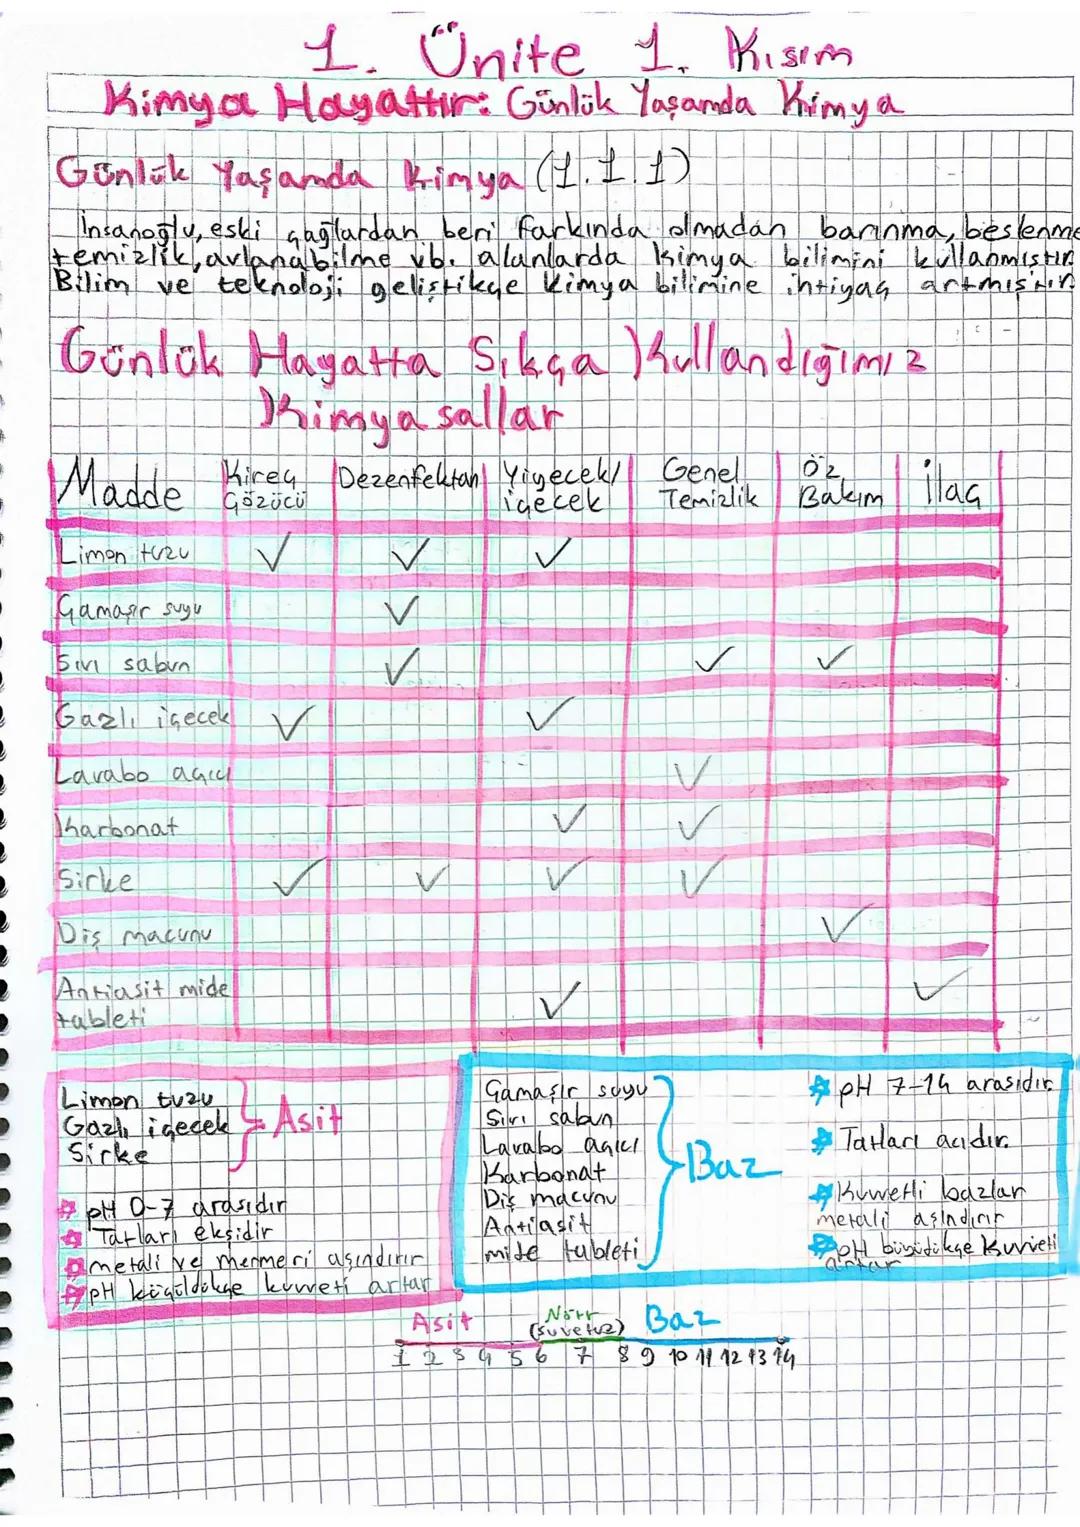 1. Ünite 1. Kısım
Kimya Hayattır: Günlük Yaşamda Kimya
Günlük Yaşamda Kimya (1.1.1)
İnsanoğlu, eski çağlardan beri farkında olmadan barınma, beslenme
temizlik, avlanabilme vb. alanlarda kimya bilimini kullanmıştır.
Bilim ve teknoloji geliştikçe kimya bilimine ihtiyaç artmıştır.
Günlük Hayatta Sıkça Kullandığımız
Kimyasallar
Madde Kireç Çözücü Dezenfektan Yiyecek/içecek Genel Temizlik Öz Bakım İlaç
Limon tuzu ✓ ✓ ✓
Çamaşır suyu ✓
Sıvı sabun ✓ ✓ ✓
Gazlı içecek ✓ ✓
Lavabo açıcı ✓
Karbonat ✓ ✓
Sirke ✓ ✓ ✓ ✓
Diş macunu ✓
Antiasit mide tableti ✓ ✓
Limon tuzu
Gazlı içecek
Sirke
Asit
pH 0-7 arasıdır
Tatları ekşidir
metali ve mermeri aşındırır
pH küçüldükçe kuvveti artar
Çamaşır suyu
Sıvı sabun
Lavabo açıcı
Karbonat
Diş macunu
Antiasit
mide tableti
Baz
pH 7-14 arasıdır.
Tatları acıdır.
Kuvvetli bazlar
metali aşındırır
pH büyüdükçe kuvveti
artar
Asit Nötr Baz
(su ve tuz)
1 2 3 4 5 6 7 8 9 10 11 12 13 14